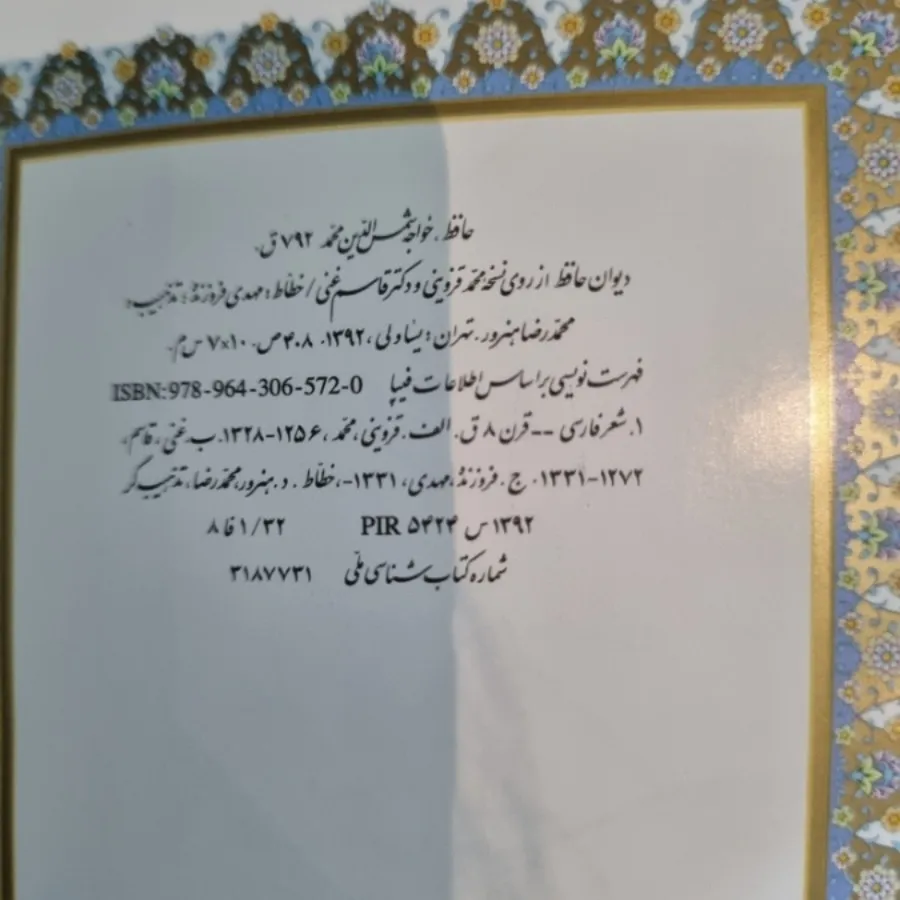 حافظ، خواجه شمس‌الدین محمد ۷۹۲ ق.
دیوان حافظ از روی نسخه محمد قزوینی و دکتر قاسم غنی / خطاط: مهدی فروزنده؛ تذهیب:
محمدرضا هنرور. تهران: یساولی، ۱۳۹۲. ۴۰۸ ص. ۱۰×۷ س م.
فهرست نویسی براساس اطلاعات فیپا ISBN:978-964-306-572-0
۱. شعر فارسی -- قرن ۸ ق. الف. قزوینی، محمد، ۱۲۵۶-۱۳۲۸. ب. غنی، قاسم،
۱۲۷۲-۱۳۳۱. ج. فروزنده، مهدی، ۱۳۳۱-، خطاط. د. هنرور، محمدرضا، تذهیب‌گر
۱۳۹۲ س ۵۴۲۴ PIR ۱/۳۲ فا ۸
شماره کتاب شناسی ملّی ۳۱۸۷۷۳۱